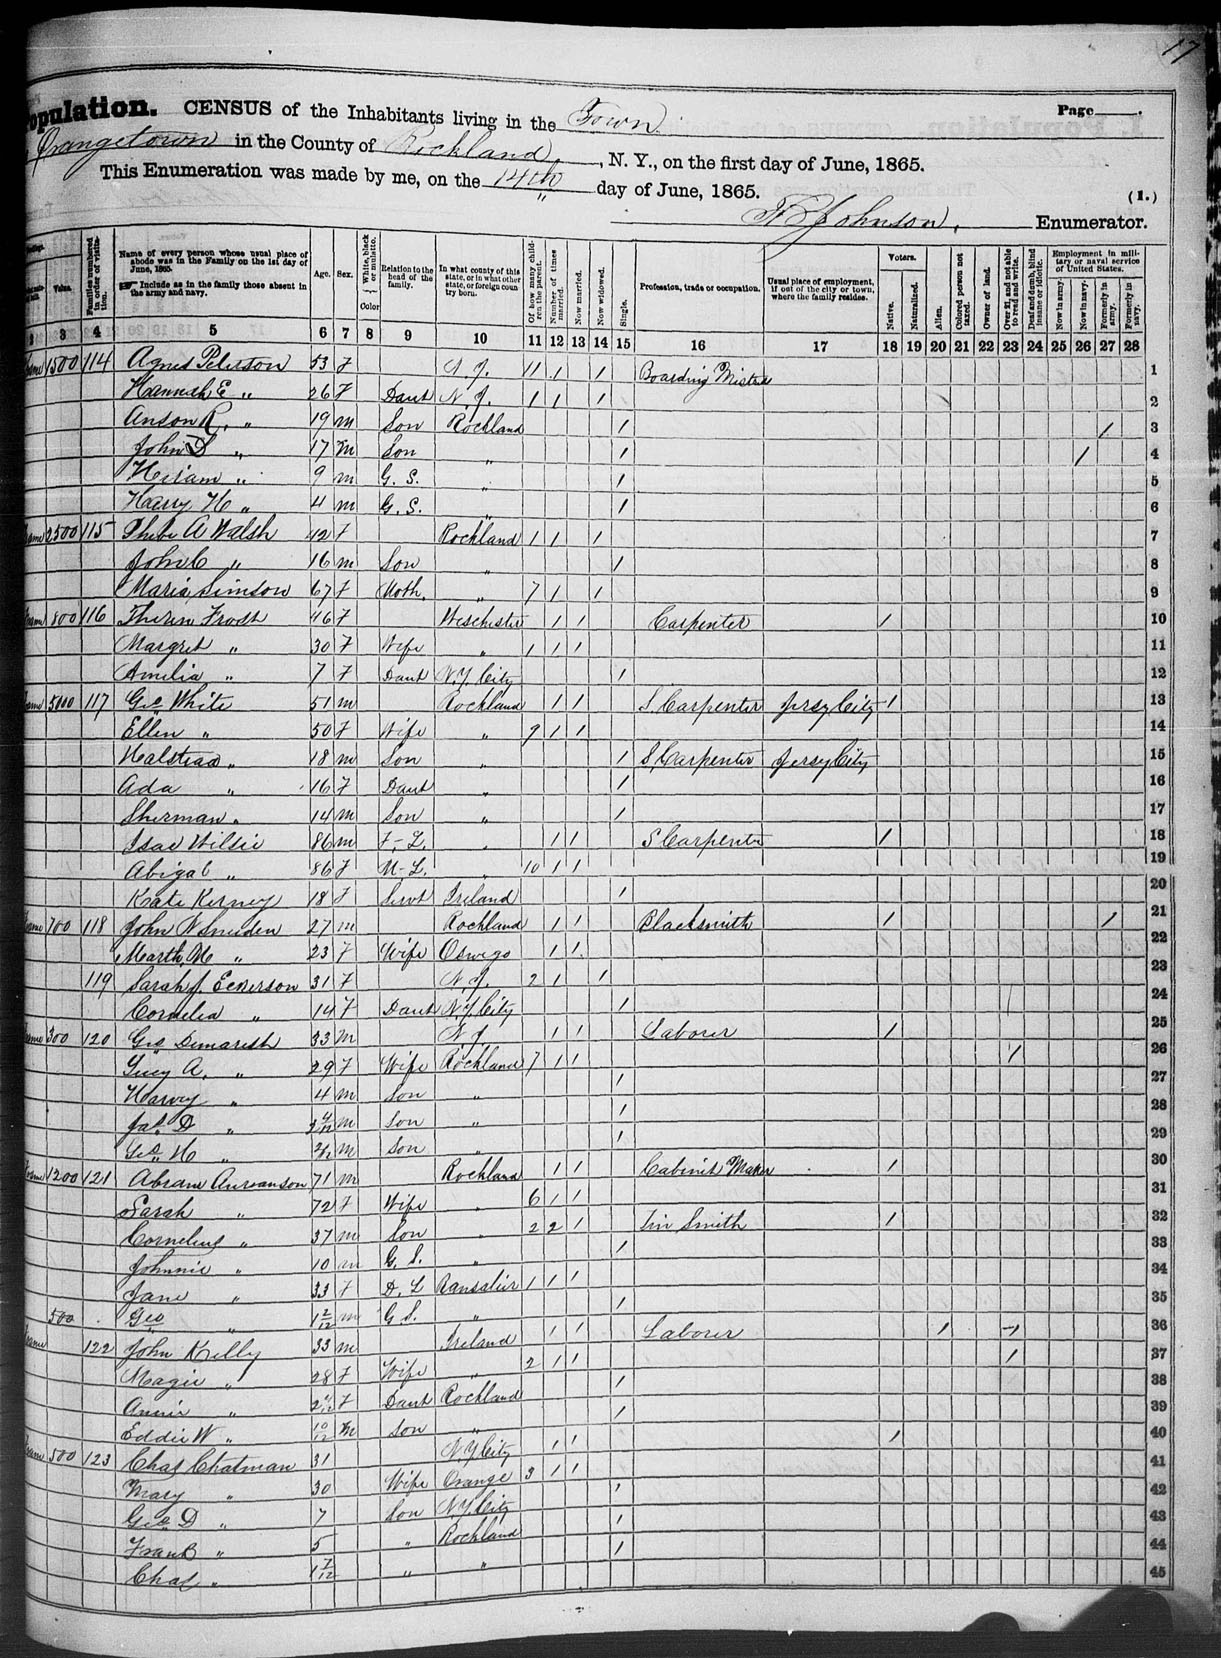 17
Population. CENSUS of the Inhabitants living in the Town Page
Orangetown in the County of Rockland, N. Y., on the first day of June, 1865.
This Enumeration was made by me, on the 14th day of June, 1865.
(1.)
Johnson, Enumerator.
Value. Families numbered in order of visitation. Name of every person whose usual place of abode was in the Family on the 1st day of June, 1865. Include as in the family those absent in the army and navy. Age. Sex. White, black or mulatto. Color Relation to the head of the family. In what county of this state, or in what other state, or foreign country born. Of how many children the parent. Number of times married. Now married. Now widowed. Single. Profession, trade or occupation. Usual place of employment, if out of the city or town, where the family resides. Voters. Native. Naturalized. Alien. Colored person not taxed. Owner of land. Over 21, and not able to read and write. Deaf and dumb, blind insane or idiotic. Employment in military or naval service of United States. Now in army. Now in navy. Formerly in army. Formerly in navy.
2 3 4 5 6 7 8 9 10 11 12 13 14 15 16 17 18 19 20 21 22 23 24 25 26 27 28
1500 114 Agnes Peterson 53 F N. J. 11 1 1 Boarding 1
Hannah E " 26 F Daut N. J. 1 1 1 2
Anson R. " 19 m Son Rockland 1 1 3
John D " 17 m Son " 1 1 4
Hiriam " 9 m G. S. " 1 5
Harry H " 4 m G. S. " 1 6
2500 115 Phebe A Walsh 42 F Rockland 1 1 1 7
John C " 16 m Son " 1 8
Maria Simson 67 F Moth. " 7 1 1 9
800 116 Frost 46 F Weschester 1 1 Carpenter 1 10
Margret " 30 F Wife " 1 1 1 11
Amilia " 7 F Daut N.Y. City 1 12
5000 117 Geo White 51 m Rockland 1 1 S Carpenter Jersy City 1 13
Ellen " 50 F Wife " 9 1 1 14
Halstead " 18 m Son " 1 S Carpenter Jersey City 15
Ada " 16 F Daut " 1 16
Sherman " 14 m Son " 1 17
Isac Willsie 86 m F-L. " 1 1 S Carpenter 1 18
Abigal " 86 F M-L. " 10 1 1 19
Kate Kerney 18 F Servt Ireland 1 20
700 118 John W Sneden 27 m Rockland 1 1 Blacksmith 1 1 21
Marth M " 23 F Wife Oswego 1 1 22
119 Sarah J. Eckerson 31 F N. J. 2 1 1 23
Cornelia " 14 F Daut N.Y. City 1 24
300 120 Geo Demarest 33 M N. J. 1 1 Laborer 1 25
Lucy A. " 29 F Wife Rockland 7 1 1 1 26
Harvey " 4 m Son " 1 27
Jas. D " m Son " 1 28
Geo H " m Son " 1 29
1200 121 Abram Auryanson 71 m Rockland 1 1 Cabinet Maker 1 30
Sarah " 72 F Wife " 6 1 1 31
Cornelius " 37 m Son " 2 2 1 Tin Smith 1 32
Johnnie " 10 m G. S. " 1 33
Jane " 33 F D. L Ransalier 1 1 1 34
500 Geo " 1 2/12 m G. S. " 1 35
122 John Kelly 33 m Ireland 1 1 Laborer 1 1 36
Magie " 28 F Wife " 2 1 1 1 37
Annie " F Daut Rockland 1 38
Eddie W " 10/12 m Son " 1 39
500 123 Chas Chatman 31 N.Y. City 1 1 1 40
Mary " 30 Wife Orange 3 1 1 41
Geo D " 7 Son N.Y. City 1 42
Frank " 5 " Rockland 1 43
Chas " 1 7/12 " " 1 44
45